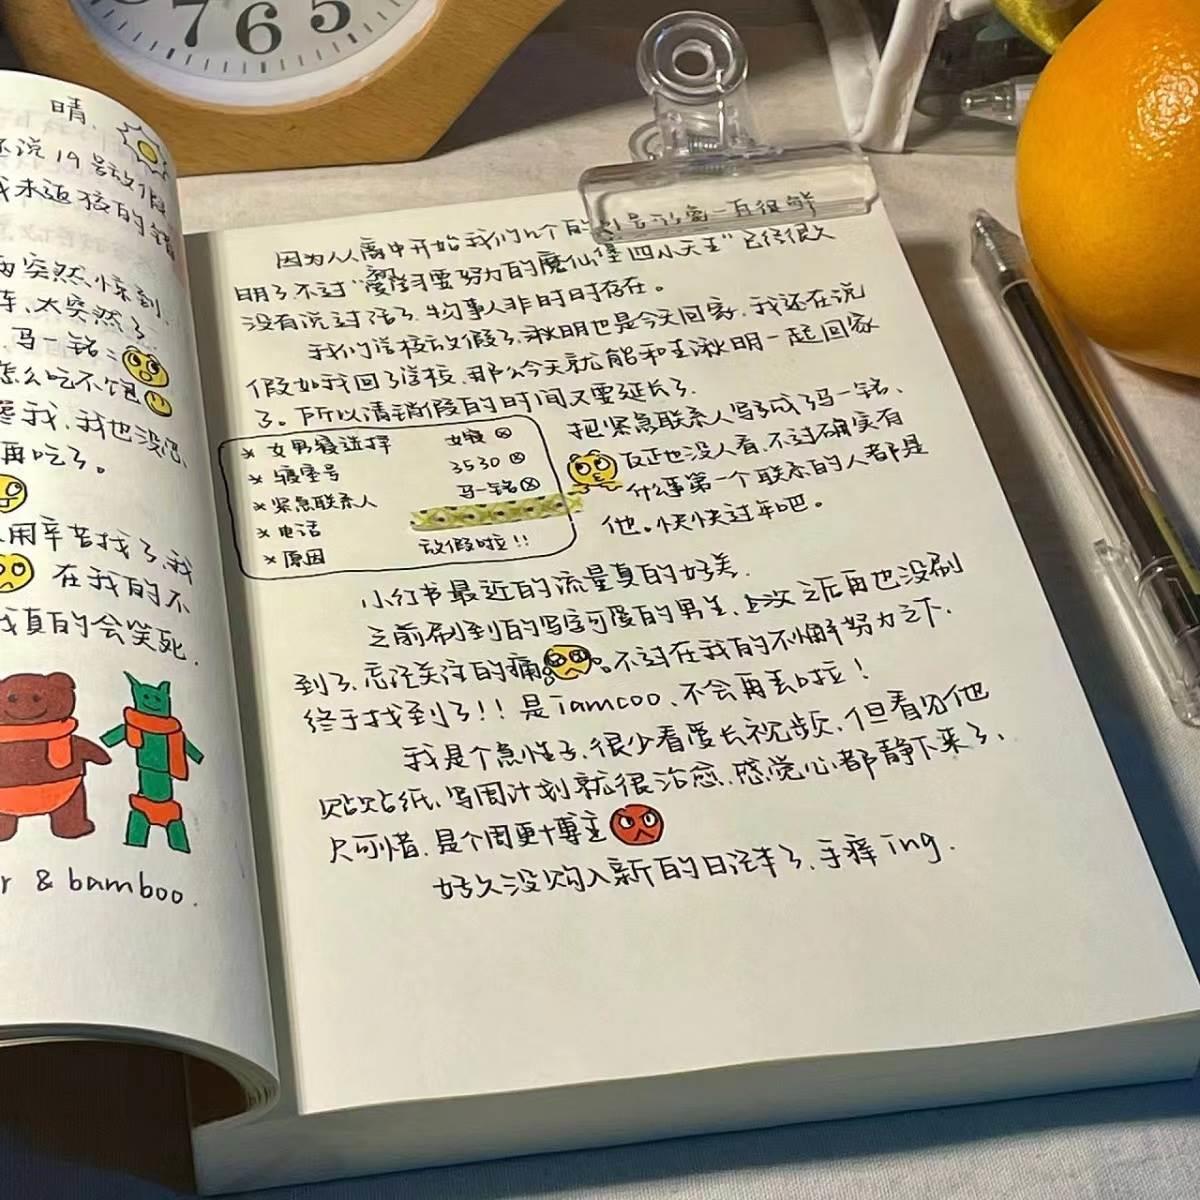 7 6 5
晴、
不说19号放假
我未返校的
突然、惊到、
太突然了、
马一铭:
怎么吃不饱
我、我也没
再吃了。
用辛苦找了、我
在我的不
真的会笑死、
r & bamboo.
因为从高中开始我们几个的
明了不过“学习要努力的魔仙堡四小天王”已经很久
没有说过话了、物事人非时时存在。
我们学校放假了、湫明也是今天回家、我还在说
假如我回了学校、那么今天就能和王湫明一起回家
了。所以清销假的时间又要延长了、
* 女男寝选择 女寝 ⊗
* 寝室号 3530 ⊗
* 紧急联系人 马一铭 ⊗
* 电话
* 原因 放假啦!!
把紧急联系人写成了马一铭、
反正也没人看、不过确实有
什么事第一个联系的人都是
他。快快过年吧。
小红书最近的流量真的好差、
之前刷到的写字可爱的男生、上次之后再也没刷
到了、忘记关注的痛。不过在我的不懈努力之下、
终于找到了!!是iamcoo、不会再丢啦!
我是个急性子、很少看爱长视频、但看见他
贴贴纸、写周计划就很治愈、感觉心都静下来了、
只可惜、是个周更博主
好久没购入新的日记本了、手痒ing.